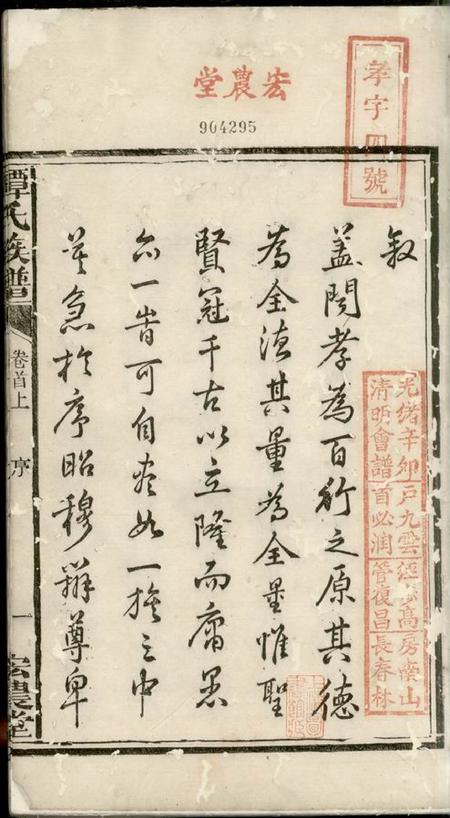 宏農堂
904295
孝字四號
光緒辛卯戶九雲經
高房
山
清明會譜首必潤管復昌長春林
叙
盖聞孝為百行之原其德
為全德其量為全量惟聖
賢冠千古以立隆而庸愚
亦一皆可自
如一族之中
莫急於序昭穆辨尊卑
譚氏族譜
卷首上
序
一
宏農堂